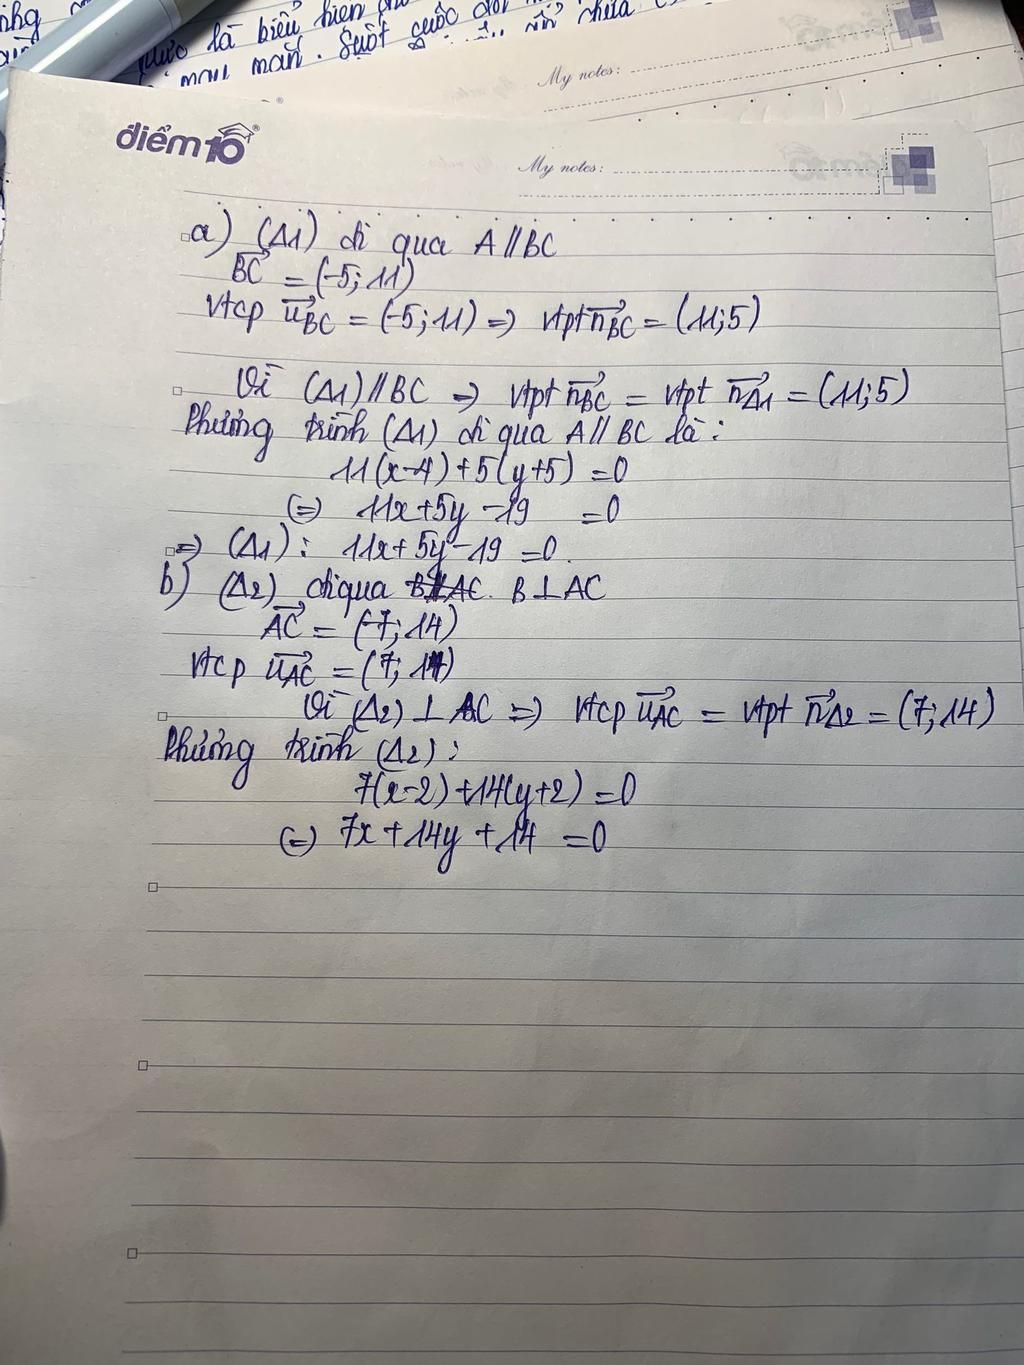 là biểu hiện
may mắn. Suốt cuộc đời
chứa
My notes:
điểm10
My notes:
a) (Δ1) đi qua A // BC
BC→ = (-5; 11)
vtcp u→BC = (-5; 11) => vtpt n→BC = (11; 5)
Vì (Δ1) // BC => vtpt n→BC = vtpt n→Δ1 = (11; 5)
Phương trình (Δ1) đi qua A // BC là:
11(x-4) + 5(y+5) = 0
(=) 11x + 5y - 19 = 0
=> (Δ1): 11x + 5y - 19 = 0.
b) (Δ2) đi qua B // AC. B ⊥ AC
AC→ = (-7; 14)
vtcp u→AC = (7; 14)
Vì (Δ2) ⊥ AC => vtcp u→AC = vtpt n→Δ2 = (7; 14)
Phương trình (Δ2):
7(x-2) + 14(y+2) = 0
(=) 7x + 14y + 14 = 0